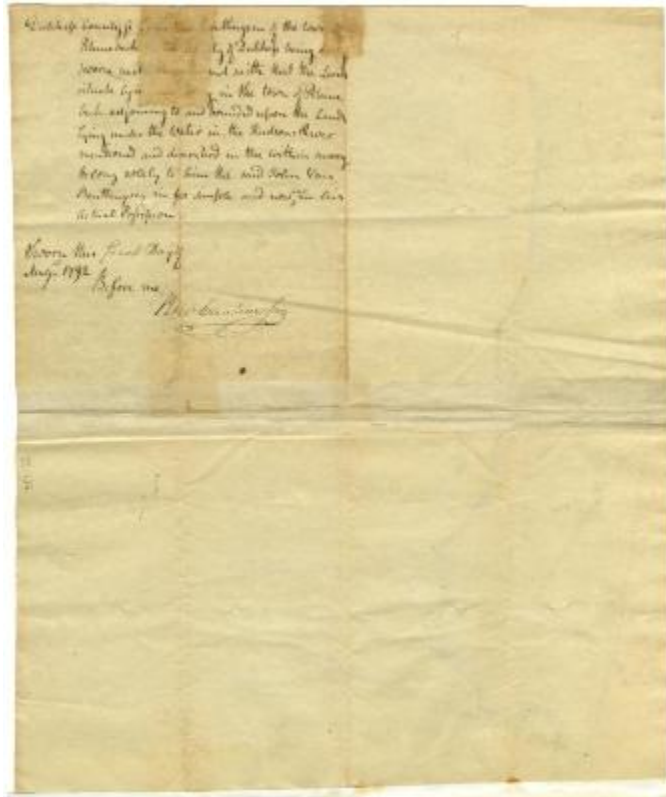 Dutchess County ss John Van Benthuysen of the town of
Rhinebeck County of Dutchess being
sworn and saith that the Land
situate lying in the town of Rhine
beck adjoining to and bounded upon the Land
lying under the Water in the Hudsons River
mentioned and described in the within
belong solely to him the said John Van
Benthuysen in fee simple and now in his
actual Possession
Sworn this first Day of
May 1792
Before me